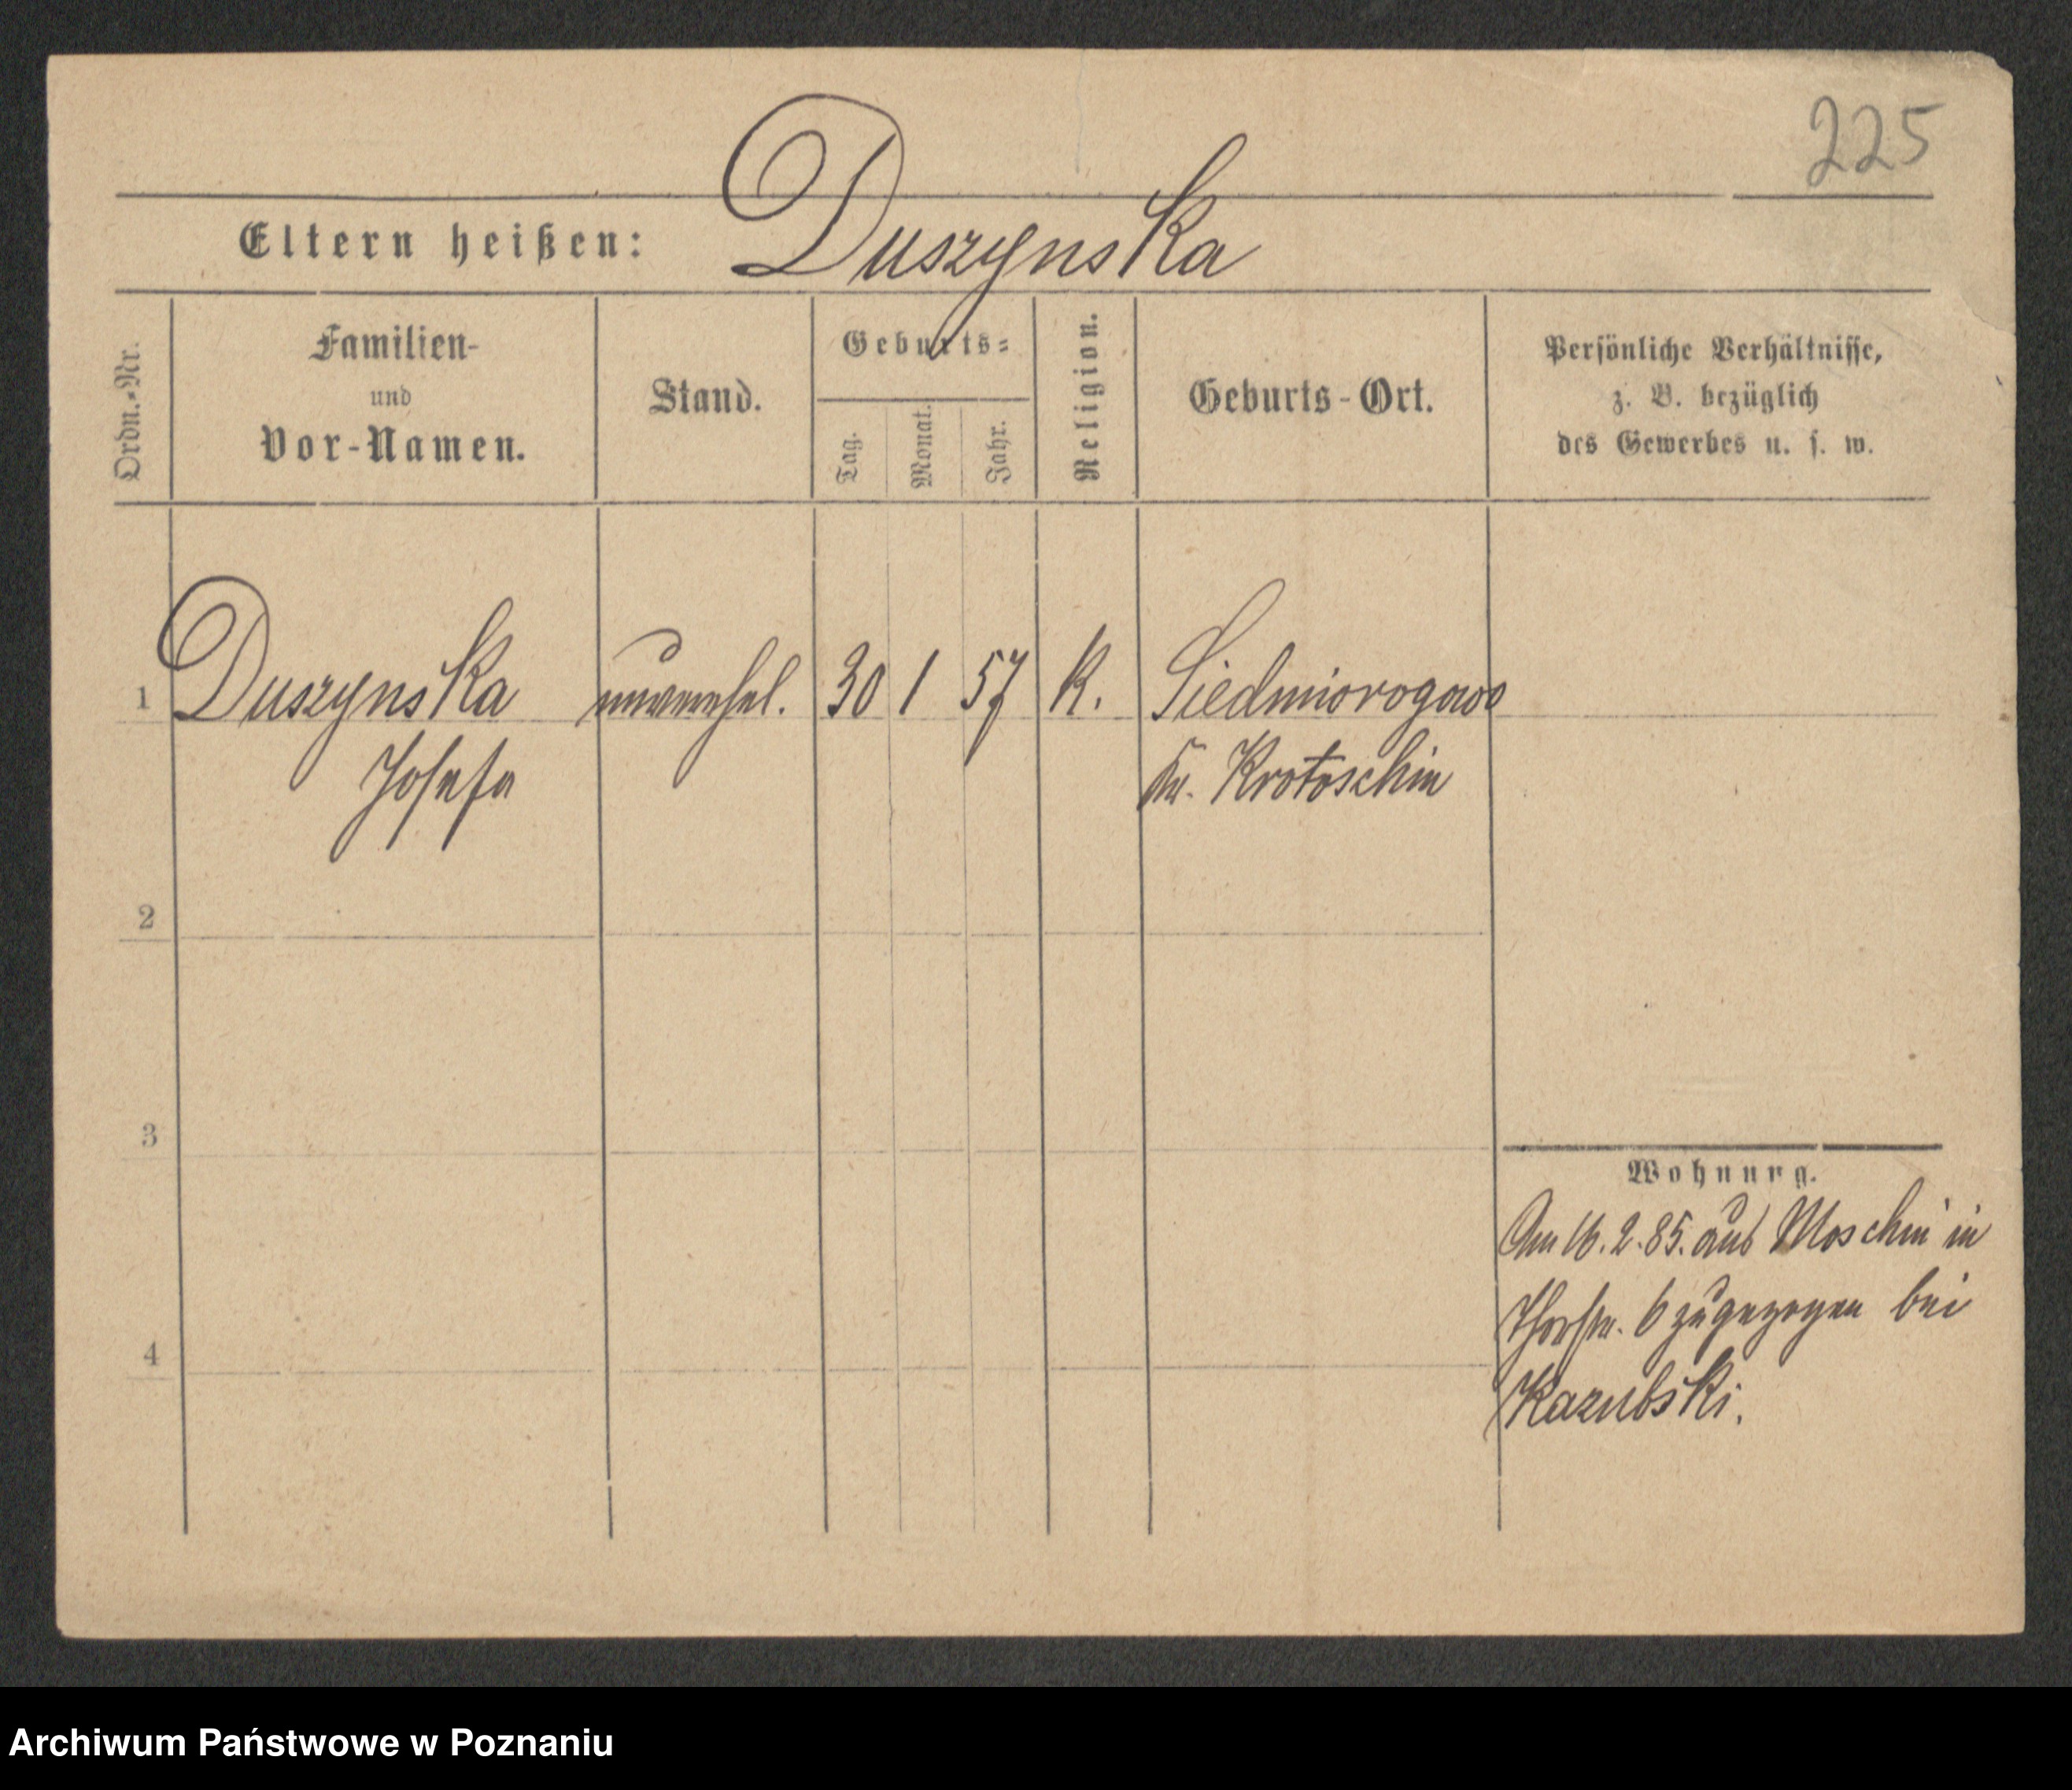 225
Eltern heißen: Duszynska
Ordn.-Nr.
Familien-
und
Vor-Namen.
Stand.
Geburts-
Tag.
Monat.
Jahr.
Religion.
Geburts-Ort.
Persönliche Verhältnisse,
z. B. bezüglich
des Gewerbes u. s. w.
1 Duszynska unverehel. 30 1 57 K. Siedmiorogowo
Josefa Kr. Krotoschin
2
3
Wohnung.
Am 16.2.85. aus Moschin in
Thorstr. 6 zugezogen bei
4
Kazubski.
Archiwum Państwowe w Poznaniu